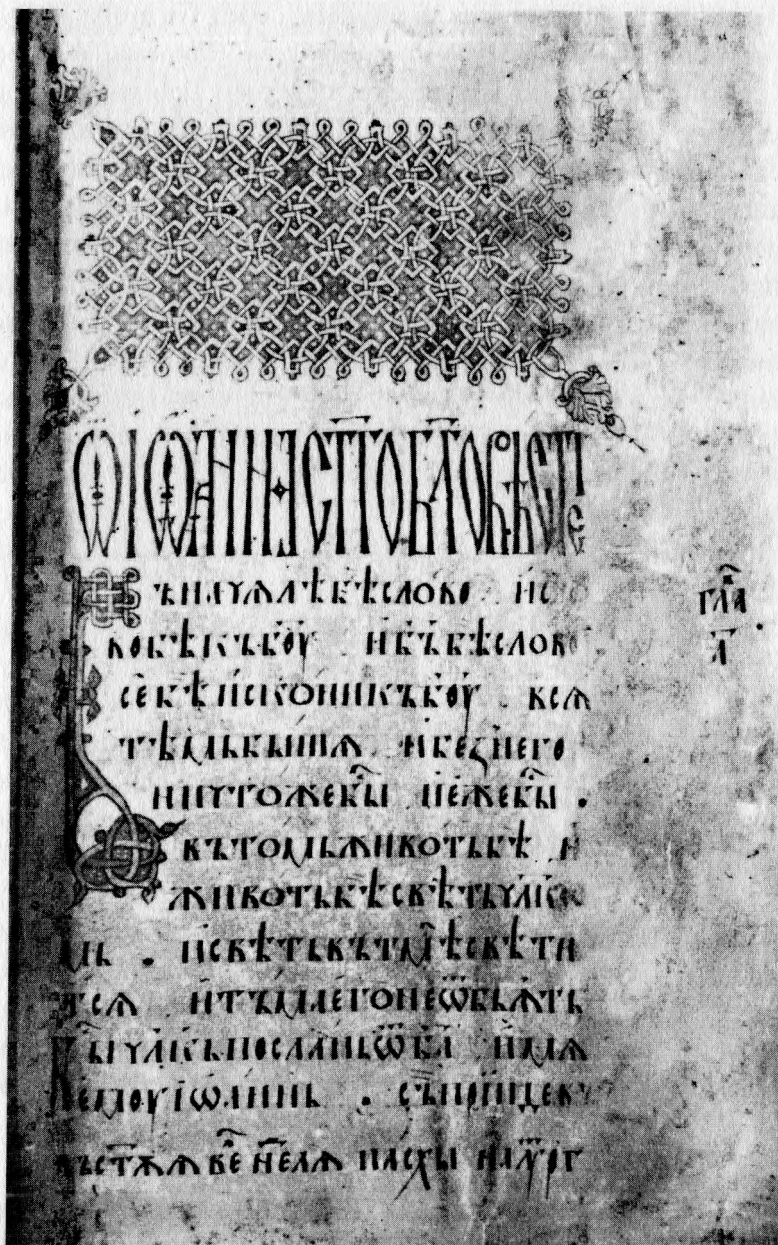 ѾІѠАННАСТ҃ОБЛ҃ГОВѢСТЕ
ъначѧлѣбѣслово и҆с
ковѣкъб҃оу и҆б҃ъбѣслово
сеⷣбѣи҆сконикъб҃оу . всѧ
тѣмьбышѧ и҆безнего
ничтожебыⷭ҇ и҆ежебыⷭ҇ .
вътомьживотьбѣ и҆
животьбѣсвѣтьчл҃кѡ
мь . и҆свѣтьвътмѣсвѣти
тсѧ и҆тъмаегонеѡбьѧть
Быⷭ҇ чл҃кьпосланьѿб҃а и҆мѧ
емоуіѡаннь . съпрїидевъ
въст҃ѫѧ нⷣелѧ пасхы
гла҃
а҃